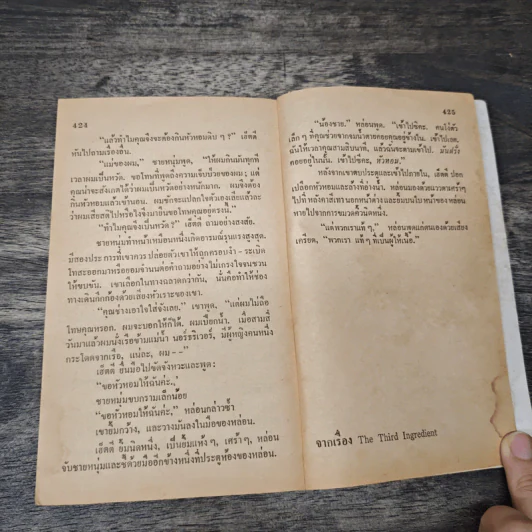 424
"แล้วทำไมคุณจึงจะต้องกินหัวหอมดิบ ๆ ?" เฮ็ตตี้
หันไปถามเรื่องอื่น.
"แม่ของผม," ชายหนุ่มพูด, "ให้ผมกินมันทุกที
เวลาผมเป็นหวัด. ขอโทษที่พูดถึงความเจ็บป่วยของผม; แต่
คุณน่าจะสังเกตได้ว่าผมเป็นหวัดอย่างหนักมาก. ผมจึงต้อง
กินหัวหอมแล้วเข้านอน. ผมชักจะแปลกใจตัวเองเสียแล้วละ
ว่าผมเสือสติไปหรือไงจึงมายืนขอโทษคุณอยู่ตรงนี้."
"ทำไมคุณจึงเป็นหวัด?" เฮ็ตตี้ ถามอย่างสงสัย.
ชายหนุ่มทำหน้าเหมือนหนึ่งเกิดอารมณ์รุนแรงสูงสุด.
มีสองประการที่เขาควรปล่อยตัวเขาให้ถูกครอบงำ - ระเบิด
โทสะออกมาหรือยอมจำนนต่อคำถามอย่างไม่เกรงใจจนชวน
ให้ขบขัน. เขาเลือกในทางฉลาดกว่ากัน, นั่นคือทำให้ช่อง
ทางเดินกึกก้องด้วยเสียงหัวเราะของเขา.
"คุณช่างเอาใจใส่จังเลย." เขาพูด, "แต่ผมไม่ถือ
โทษคุณหรอก. ผมจะบอกให้ก็ได้. ผมเปียกน้ำ. เมื่อสามสี่
วันมาแล้วผมนั่งเรือข้ามแม่น้ำ นอร์ธริเวอร์, มีผู้หญิงคนหนึ่ง
กระโดดจากเรือ, แน่ละ, ผม--"
เฮ็ตตี้ ยื่นมือไปขัดจังหวะและพูด:
"ขอหัวหอมให้ฉันค่ะ.,
ชายหนุ่มขบกรามเล็กน้อย
"ขอหัวหอมให้ฉันค่ะ," หล่อนกล่าวซ้ำ
เขายิ้มกว้าง, และวางมันลงในมือของหล่อน.
เฮ็ตตี้ ยิ้มนิดหนึ่ง, เป็นยิ้มแห้ง ๆ, เศร้า ๆ, หล่อน
จับชายหนุ่มและชี้ด้วยมืออีกข้างหนึ่งที่ประตูห้องของหล่อน.
425
"น้องชาย," หล่อนพูด, "เข้าไปซิคะ. คนโง่ตัว
เล็ก ๆ ที่คุณช่วยจากจมน้ำตายคอยคุณอยู่ข้างใน. เข้าไปเถอะ.
ฉันให้เวลาคุณสามสิบนาที, แล้วฉันจะตามเข้าไป. มันฝรั่ง
คอยอยู่ในนั้น. เข้าไปซิคะ, หัวหอม."
หลังจากเขาตบประตูและเข้าไปภายใน, เฮ็ตตี้ ปอก
เปลือกหัวหอมและล้างที่อ่างน้ำ. หล่อนมองด้วยแววตาคร่ำๆ
ไปที่ หลังคาสีเทานอกหน้าต่าง และยิ้มบนใบหน้าของ หล่อน
หายไปจากการขมวดคิ้วนิดหนึ่ง.
"แต่พวกเราแท้ ๆ," หล่อนพูดแก่ตนเองด้วยเสียง
เครียด, "พวกเรา แท้ ๆ ที่เป็นผู้ให้เนื้อ".
จากเรื่อง The Third Ingredient